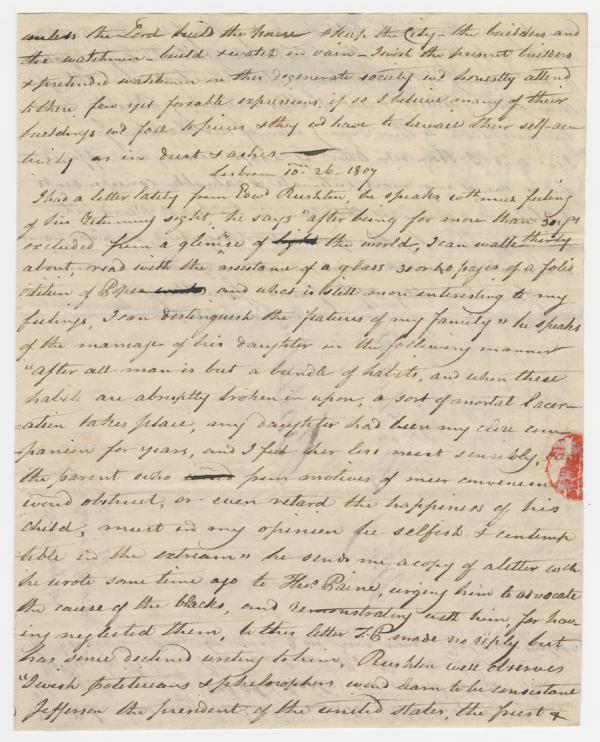 unless the Lord build the house & keep the City – the builders and
the watchmen – build & watch in vain – I wish the present builders
& pretended watchmen in this degenerate society wd honestly attend
to these few yet forceable expressions, if so I believe many of their
buildings wd fall to pieces & they wd have to bewail their self-ac-
tivity as in dust & ashes —
Lisburn 10mo 26 - 1807
I had a letter lately from Edwd Rushton, he speaks with much feeling
of his returning sight, he says "after being for more than 30 yrs
excluded from a glimse of light the world, I can walk thirty
about, read with the assistance of a glass 30 or 40 pages of a folio
edition of Pope works and what is still more interesting to my
feelings, I can distinguish the features of my family" he speaks
of the marriage of his daughter in the following manner
"after all man is but a bundle of habits, and when these
habits are abruptly broken in upon, a sort of mortal lacer-
ation takes place, my daughter had been my close com-
panion for years, and I feel her loss most sensibly,
the parent who from motives of meer convenience
would obstruct, or even retard the happiness of his
child, must in my opinion be selfish & contemp
tible in the extream" he sends me a copy of a letter wch
he wrote some time ago to Thos. Paine, urging him to advocate
the cause of the blacks, and remonstrating with him, for hav-
ing neglected them, to this letter T:P made no reply but
has since declined writing to him, Rushton well observes
"I wish politicians & philosophers would learn to be consistant
Jefferson the president of the united states, the priest &